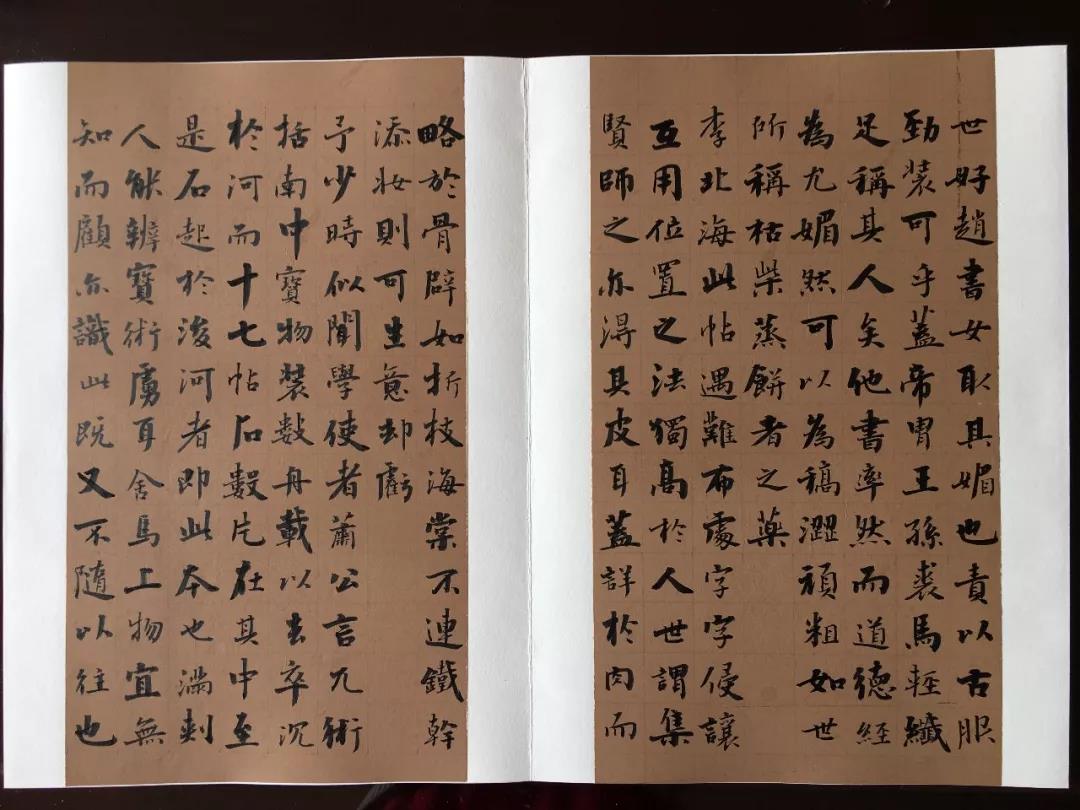 世好趙書女取其媚也責以古服
勁裝可乎蓋帝胄王孫裘馬輕纖
足稱其人矣他書率然而道德經
為尤媚然可以為槁澀頑粗如世
所稱枯柴蒸餅者之藥
李北海此帖遇難布處字字侵讓
互用位置之法獨高於人世謂集
賢師之亦得其皮耳蓋詳於肉而
略於骨辟如折枝海棠不連鐵幹
添妝則可生意却虧
予少時似聞學使者蕭公言兀術
括南中寶物裝數舟載以去卒沉
於河而十七帖石數片在其中至
是石起於浚河者即此本也滿剌
人能辨寶術虜耳舍馬上物宜無
知而顧亦識此既又不隨以往也